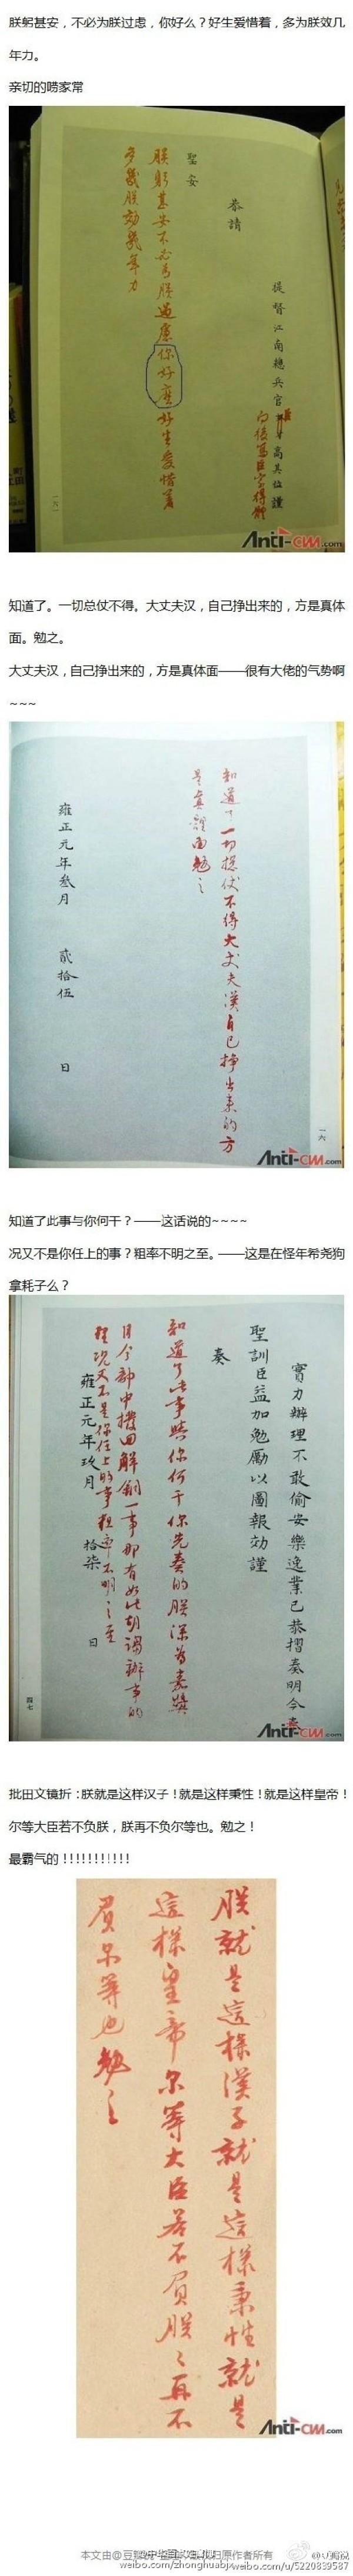 朕躬甚安，不必为朕过虑，你好么？好生爱惜着，多为朕效几
年力。
亲切的唠家常
提督江南總兵官
高其位謹
向後寫臣字得體
恭請
聖安
朕躬甚安不必為朕過慮你好麽好生愛惜着
多為朕効幾年力
一六一
Anti-CM.com
知道了。一切总仗不得。大丈夫汉，自己挣出来的，方是真体
面。勉之。
大丈夫汉，自己挣出来的，方是真体面——很有大佬的气势啊
~~~
知道了一切總仗不得大丈夫漢自己掙出来的方
是真體面勉之
雍正元年叁月 貳拾伍 日
一六
Anti-CM.com
知道了此事与你何干？——这话说的~~~~
况又不是你任上的事？粗率不明之至。——这是在怪年希尧狗
拿耗子么？
實力辦理不敢偷安樂逸業已恭摺奏明今
聖訓臣益加勉勵以圖報効謹
奏
知道了此事與你何干你先奏的朕深為嘉獎
目今部中撥回解銅一事那有如此胡謅辦事的
理况又不是你任上的事粗率不明之至
雍正元年玖月 拾柒 日
四七
Anti-CM.com
批田文镜折：朕就是这样汉子！就是这样秉性！就是这样皇帝！
尔等大臣若不负朕，朕再不负尔等也。勉之！
最霸气的！！！！！！！！！！
朕就是這樣漢子就是這樣秉性就是
這樣皇帝尔等大臣若不負朕々再不
負尔等也勉之
Anti-CM.com
本文由@豆瓣
归原作者所有
weibo.com/zhonghuabj
weibo.com/u/5220839587